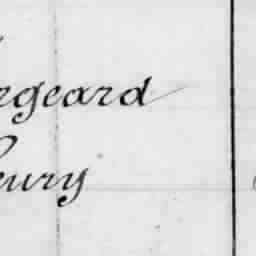 rgeard
eury